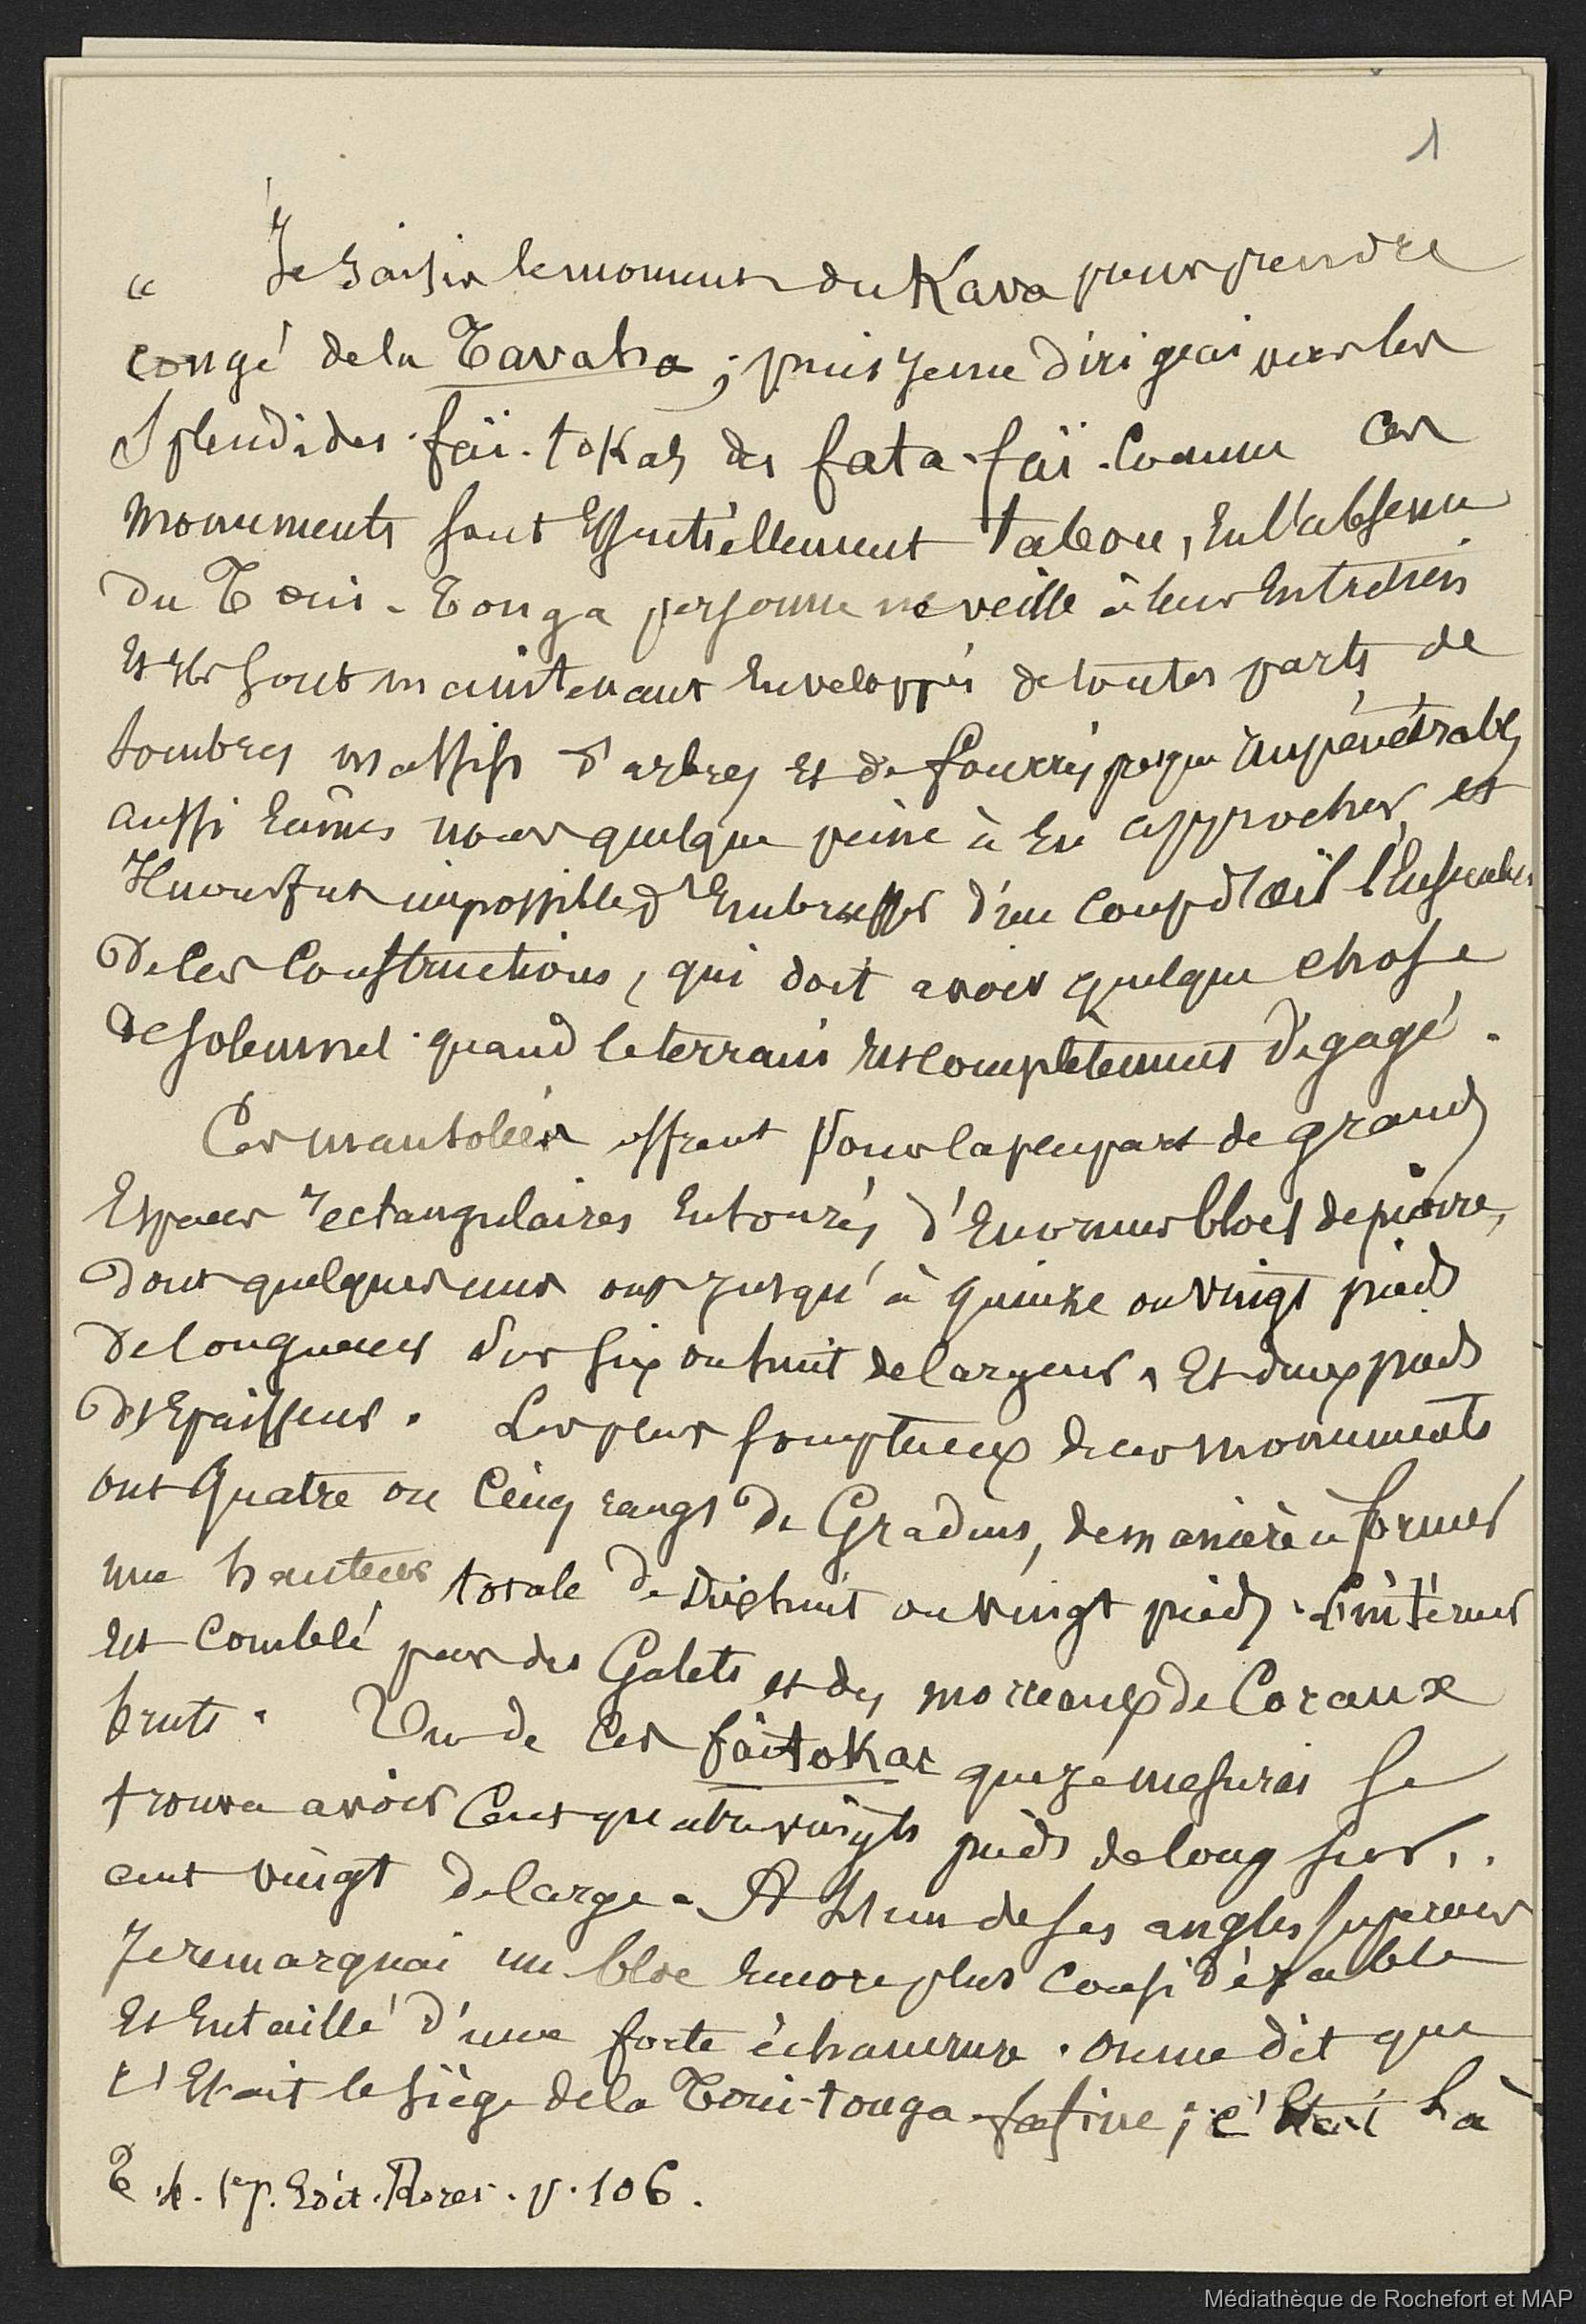 1
“ Je saisis le moment du Kava pour prendre
congé de la Tavaha ; puis je me dirigeai vers les
splendides faï-tokas des fata-faï. Comme ces
monuments sont essentiellement tabou, en l'absence
du Toui-Tonga personne ne veille à leur entretien
et ils sont maintenant enveloppés de toutes parts de
sombres massifs d'arbres et de fourrés presque impénétrables
aussi eûmes nous quelque peine à en approcher, et
il nous fut impossible d'embrasser d'un coup d'œil l'ensemble
de ces constructions, qui doit avoir quelque chose
de solennel quand le terrain est complètement dégagé.
Ces mausolées offrent pour la plupart de grands
espaces rectangulaires entourés d'énormes blocs de pierre,
dont quelques uns ont jusqu'à quinze ou vingt pieds
de longueur sur six ou huit de largeur, et deux pieds
d'épaisseur. Les plus somptueux de ces monuments
ont quatre ou cinq rangs de Gradins, de manière à former
une hauteur totale de dix huit ou vingt pieds. L'intérieur
est comblé par des Galets et des morceaux de Coraux
bruts. Un de ces faïtokas que je mesurai se
trouva avoir cent quatre vingts pieds de long sur..
cent vingt de large. A l'un de ses angles supérieurs
je remarquai un bloc encore plus considérable
et entaillé d'une forte échancrure. On me dit que
c'était le siège de la Toui-tonga-fafine ; c'était là
T. 4. 1e p. Edit. Rores. p. 106.
Médiathèque de Rochefort et MAP